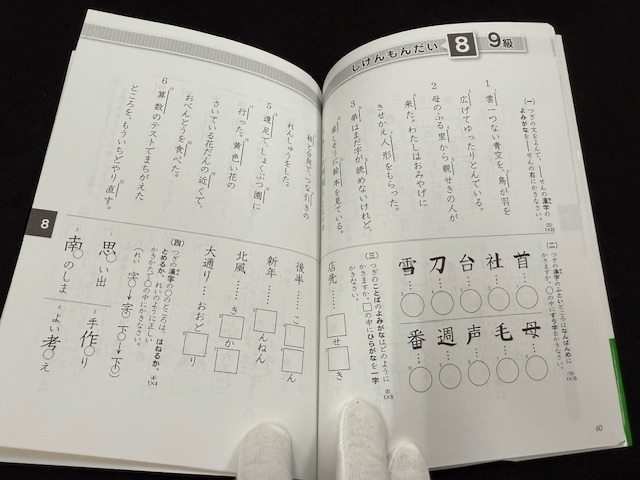 しけんもんだい 8 9級
(一) つぎの文をよんで、――せんの漢字の
よみがなを――せんの右にかきなさい。
1 雲一つない青空を、鳥が羽を
広げてゆったりとんでいる。
2 母のふる里から親せきの人が
来た。わたしはおみやげに
きせかえ人形をもらった。
3 弟はまだ字が読めないけれど、
楽しそうに絵本を見ている。
(二) つぎの漢字のふといところはなんばんめに
かきますか。○の中にすう字をかきなさい。
首…
社…
台…
刀…
雪…
母…
毛…
声…
週…
番…
(三) つぎのことばのよみがなはどのように
かきますか。□の中にひらがなを一字
かきなさい。
店先……□せ□き
60
れんしゅうをした。
5 遠足でしょくぶつ園に
行った。黄色い花の
さいている花だんの近くで、
おべんとうを食べた。
6 算数のテストでまちがえた
ところを、もういちどやり直す。
後半……こ□□ん
新年……□んねん
北風……き□か□
大通り……おおど□り
(四) つぎの漢字の○のところは、はねるか、
とめるか、れいのように正しい
かきかたで○の中にかきなさい。
(れい 字→字 下→下)
思い出
手作り
南のしま
よい考え
8